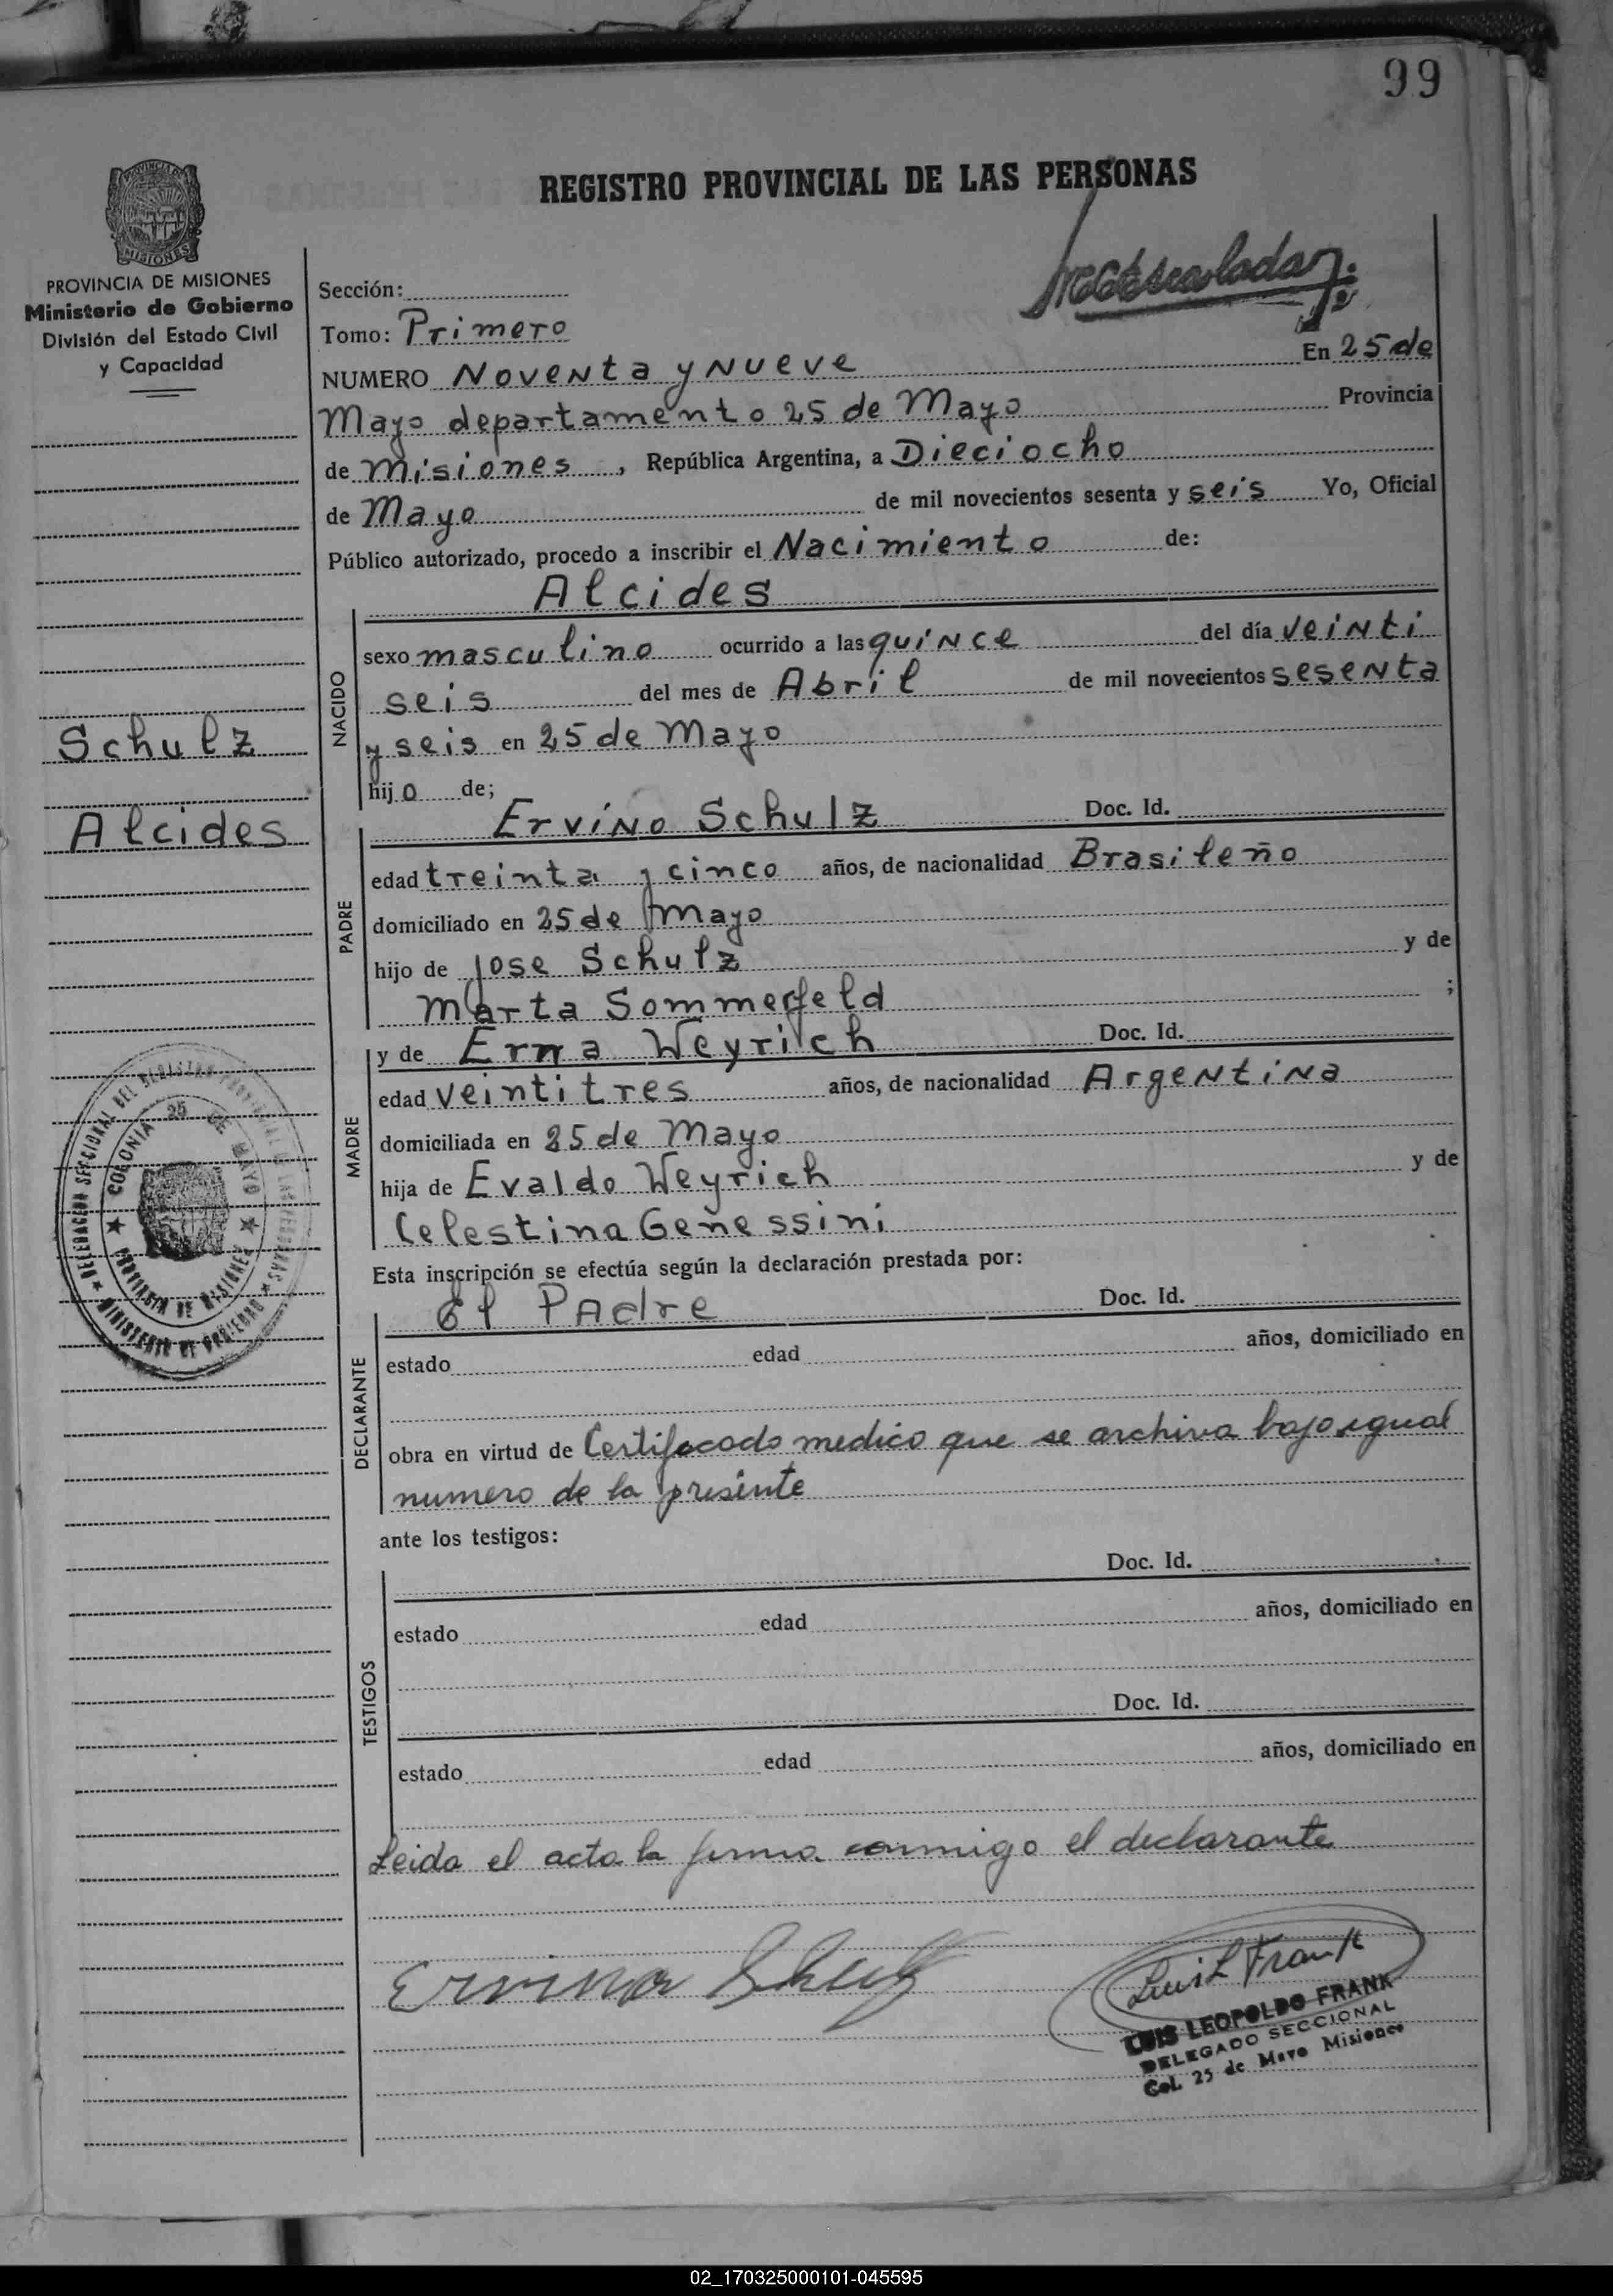 99
REGISTRO PROVINCIAL DE LAS PERSONAS
PROVINCIA DE MISIONES
Ministerio de Gobierno
División del Estado Civil
y Capacidad
Schulz
Alcides
Sección:
Tomo: Primero
NUMERO Noventa y Nueve En 25 de
Mayo departamento 25 de Mayo Provincia
de Misiones, República Argentina, a Dieciocho
de Mayo de mil novecientos sesenta y seis Yo, Oficial
Público autorizado, procedo a inscribir el Nacimiento de:
Alcides
NACIDO
sexo masculino ocurrido a las quince del día veinti
seis del mes de Abril de mil novecientos sesenta
y seis en 25 de Mayo
hijo de;
Ervino Schulz Doc. Id.
PADRE
edad treinta y cinco años, de nacionalidad Brasileño
domiciliado en 25 de Mayo
hijo de Jose Schulz y de
Marta Sommerfeld ;
y de Erna Weyrich Doc. Id.
MADRE
edad veintitres años, de nacionalidad Argentina
domiciliada en 25 de Mayo
hija de Evaldo Weyrich y de
Celestina Genessini
Esta inscripción se efectúa según la declaración prestada por:
El Padre Doc. Id.
DECLARANTE
estado edad años, domiciliado en
obra en virtud de Certificado medico que se archiva bajo igual
numero de la presente
ante los testigos:
Doc. Id.
TESTIGOS
estado edad años, domiciliado en
Doc. Id.
estado edad años, domiciliado en
Leida el acta la firma conmigo el declarante
Ervino Schulz
Luis L Frank
LUIS LEOPOLDO FRANK
DELEGADO SECCIONAL
Col. 25 de Mayo Misiones
DELEGACION SECCIONAL DEL REGISTRO PROVINCIAL DE LAS PERSONAS
COLONIA 25 DE MAYO
PROVINCIA DE MISIONES
MINISTERIO DE GOBIERNO
02_170325000101-045595